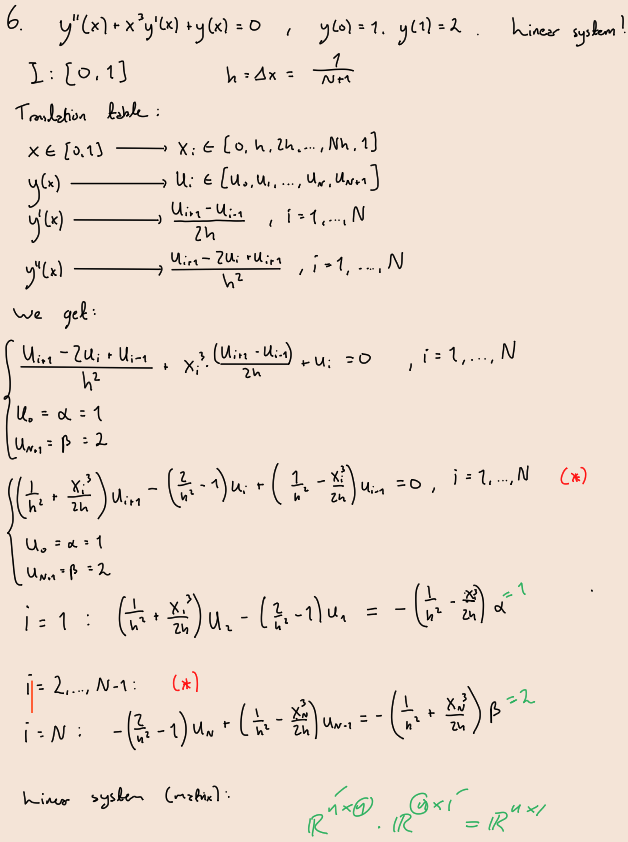 6. y''(x) + x³y'(x) + y(x) = 0 , y(0) = 1. y(1) = 2 . Linear system!
I : [0,1] h = Δx = 1/(N+1)
Translation table :
x ∈ [0,1] ⟶ xᵢ ∈ [0, h, 2h, ..., Nh, 1]
y(x) ⟶ uᵢ ∈ [u₀, u₁, ..., u_N, u_{N+1}]
y'(x) ⟶ (u_{i+1} - u_{i-1})/(2h) , i = 1, ..., N
y''(x) ⟶ (u_{i+1} - 2uᵢ + u_{i+1})/h² , i = 1, ..., N
we get :
(u_{i+1} - 2uᵢ + u_{i-1})/h² + xᵢ³ · (u_{i+1} - u_{i-1})/(2h) + uᵢ = 0 , i = 1, ..., N
u₀ = α = 1
u_{N+1} = β = 2
(1/h² + xᵢ³/(2h)) u_{i+1} - (2/h² - 1) uᵢ + (1/h² - xᵢ³/(2h)) u_{i-1} = 0 , i = 1, ..., N (*)
u₀ = α = 1
u_{N+1} = β = 2
i = 1 : (1/h² + x₁³/(2h)) u₂ - (2/h² - 1) u₁ = - (1/h² - x₁³/(2h)) α = 1
i = 2, ..., N-1 : (*)
i = N : - (2/h² - 1) u_N + (1/h² - x_N³/(2h)) u_{N-1} = - (1/h² + x_N³/(2h)) β = 2
Linear system (matrix) : ℝ^{n×n} · ℝ^{n×1} = ℝ^{n×1}